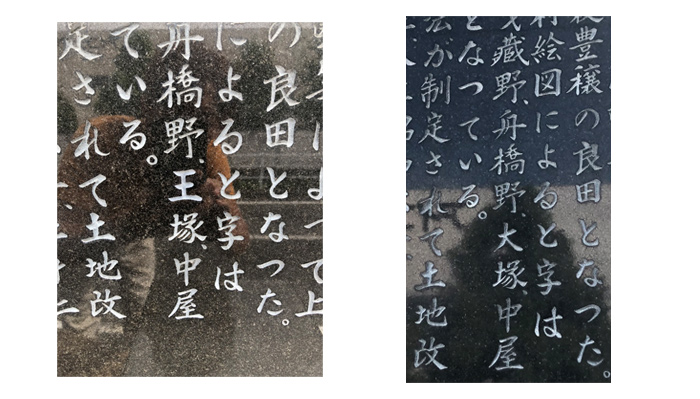 によって上
の良田となった。
によると字は
舟橋野、王塚、中屋
ている。
定されて土地改
豊穣の良田となった。
村絵図によると字は
藏野、舟橋野、大塚、中屋
となっている。
法が制定されて土地改